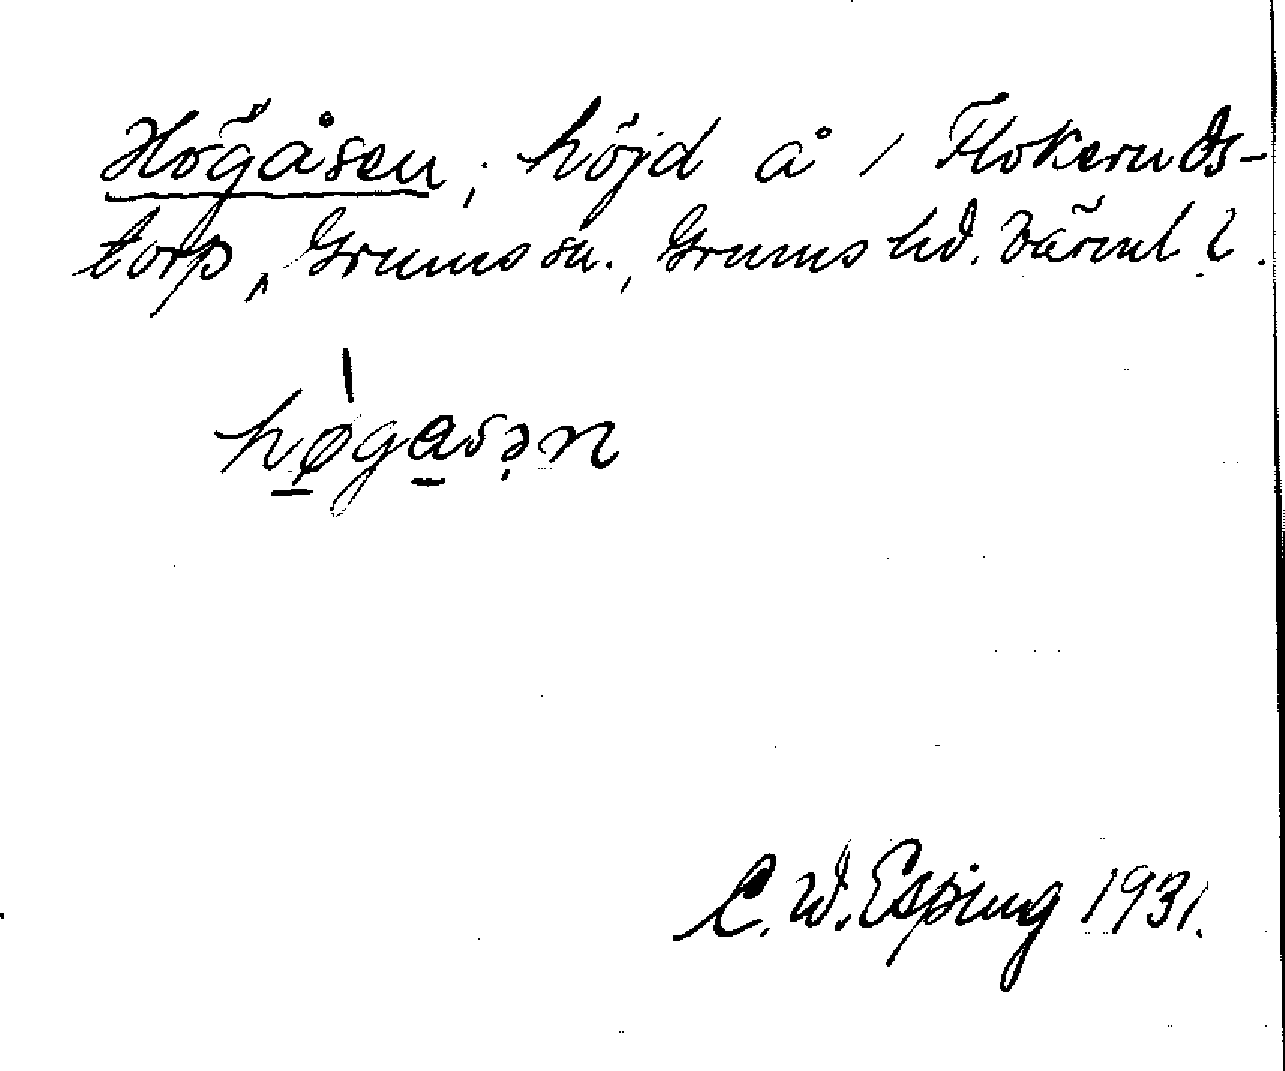 Högåsen, höjd å 1 Flokeruds-
torp, Grums sn., Grums hd. Värml l.
høgasən
C. W. Esping 1931.